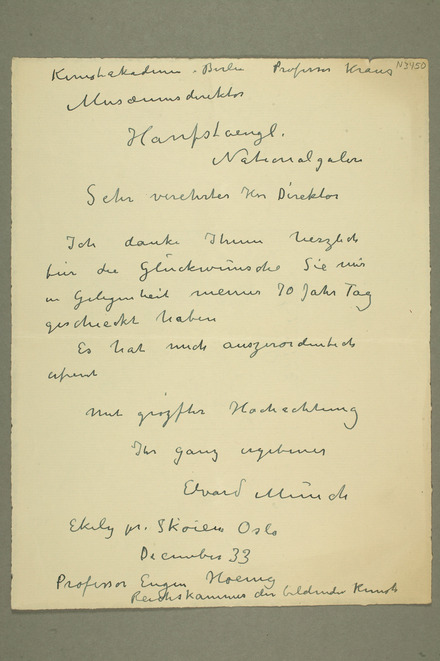 Kunstakademie. Berlin Professor Kraus N3450
Musæumsdirektor
Hanfstaengl.
Nationalgaleri
Sehr verehrter Herr Direktor
Ich danke Ihnen herzlich
für die Glückwünsche Sie mir
in Gelegenheit meines 70 Jahr Tag
geschickt haben
Es hat mich auszerordentlich
erfreut
Mit grözster Hochachtung
Ihr ganz ergebener
Edvard Munch
Ekely pr. Skøien Oslo
December 33
Professor Eugen Hoenig
Reichskammer der bildenden Kunst